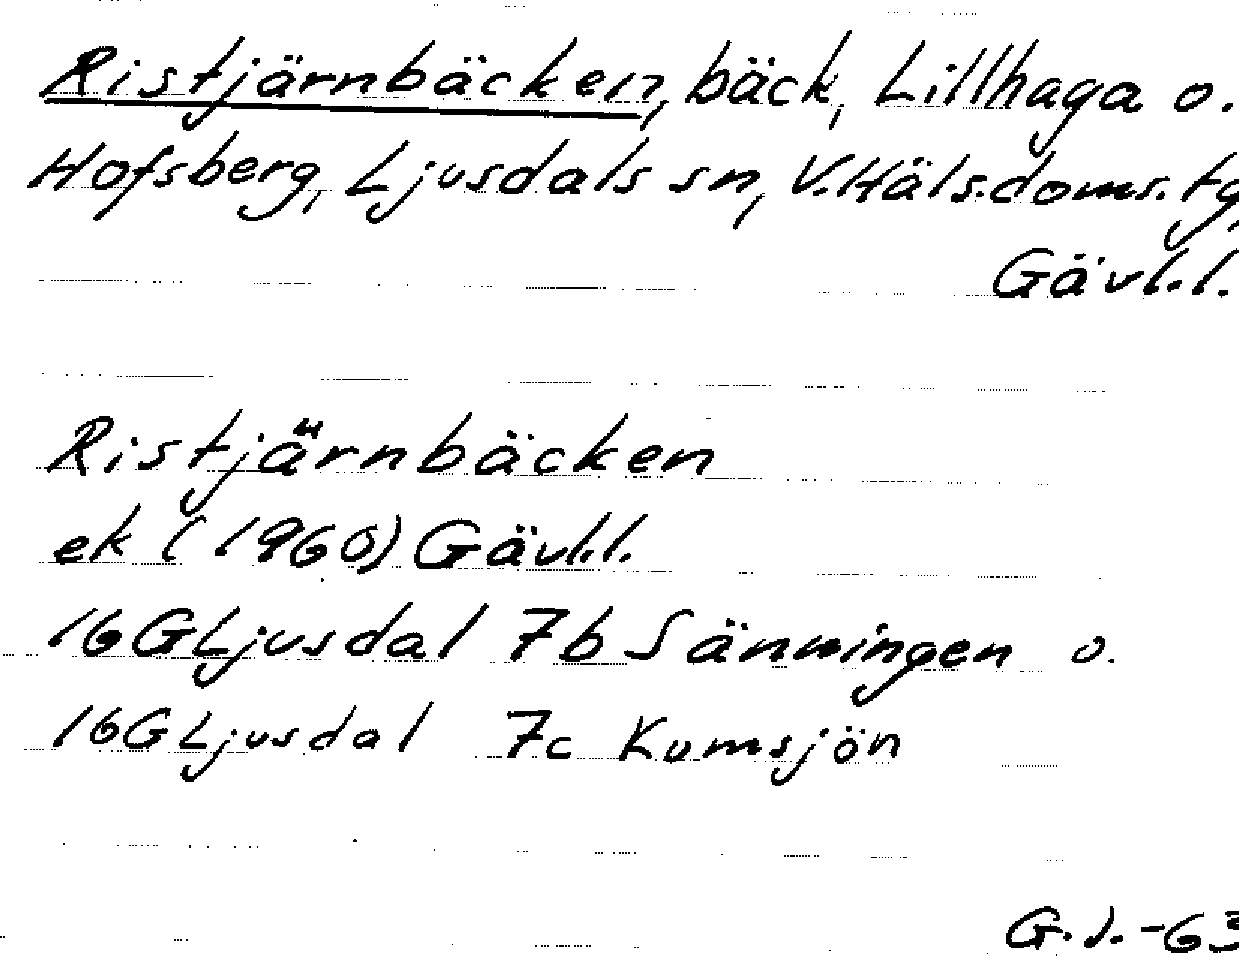 Ristjärnbäcken, bäck, Lillhaga o.
Hofsberg, Ljusdals sn, V.Häls.doms.tg,
Gävl.l.
Ristjärnbäcken
ek (1960) Gävl.l.
16GLjusdal 7b Sänningen o.
16GLjusdal 7c Kumsjön
G.J.-63